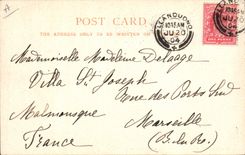 POST CARD
THE ADDRESS ONLY TO BE WRITTEN ON
LLANDUDNO
10.15 AM
JU 20
04
Mademoiselle Madeleine Delaage
Villa St Joseph
Rue des Ports Sud
Malmousque
Marseille
France
(B. du R.)